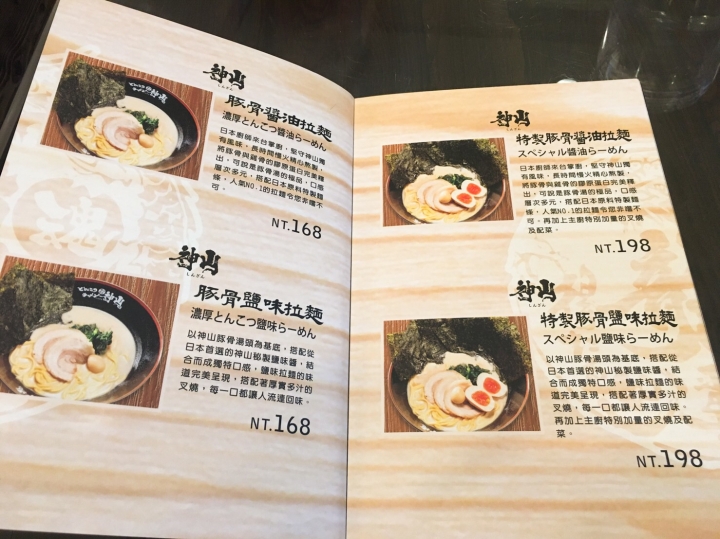 神山
しんざん
豚骨醬油拉麵
濃厚とんこつ醬油らーめん
日本廚師來台掌廚，堅守神山獨
有風味，長時間慢火精心熬製，
將豚骨與雞骨的膠原蛋白完美釋
出，可說是豚骨湯的極品，口感
層次多元，搭配日本原料特製麵
條，人氣NO.1的拉麵令您非嚐不
可。
NT.168
神山
しんざん
豚骨鹽味拉麵
濃厚とんこつ鹽味らーめん
以神山豚骨湯頭為基底，搭配從
日本首選的神山秘製鹽味醬，結
合而成獨特口感，鹽味拉麵的味
道完美呈現，搭配著厚實多汁的
叉燒，每一口都讓人流連回味。
NT.168
神山
しんざん
特製豚骨醬油拉麵
スペシャル醬油らーめん
日本廚師來台掌廚，堅守神山獨
有風味，長時間慢火精心熬製，
將豚骨與雞骨的膠原蛋白完美釋
出，可說是豚骨湯的極品，口感
層次多元，搭配日本原料特製麵
條，人氣NO.1的拉麵令您非嚐不
可。再加上主廚特別加量的叉燒
及配菜。
NT.198
神山
しんざん
特製豚骨鹽味拉麵
スペシャル鹽味らーめん
以神山豚骨湯頭為基底，搭配從
日本首選的神山秘製鹽味醬，結
合而成獨特口感，鹽味拉麵的味
道完美呈現，搭配著厚實多汁的
叉燒，每一口都讓人流連回味。
再加上主廚特別加量的叉燒及配
菜。
NT.198